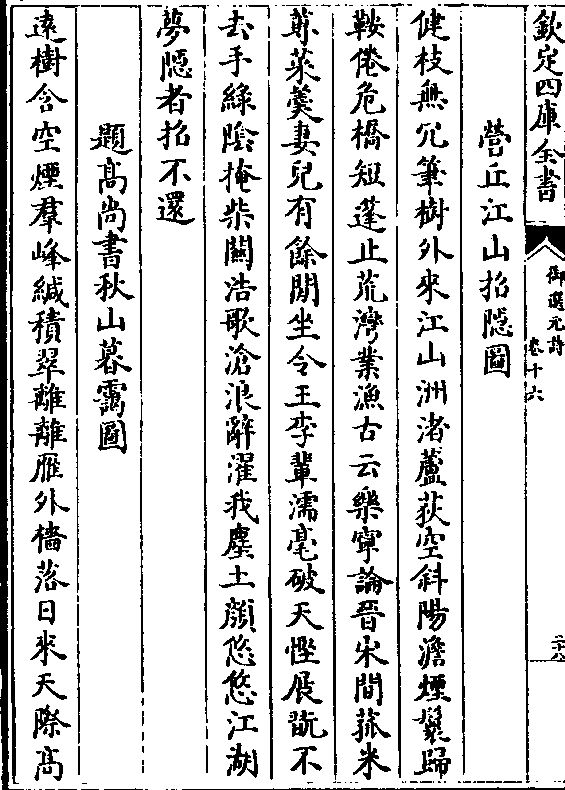 欽定四庫全書
御選元詩
卷十六
二十八
營丘江山招隠圖
健枝無冗筆樹外來江山洲渚蘆荻空斜陽澹煙鬟歸
鞍倦危橋短蓬止荒灣業漁古云樂寧論晉宋間菰米
蓴菜羮妻兒有餘閒坐令王李輩濡毫破天慳展翫不
去手綠陰掩柴闗浩歌滄浪辭濯我塵土顔悠悠江湖
夢隠者招不還
題髙尚書秋山暮靄圖
逺樹含空煙羣峰緘積翠離離雁外檣落日來天際髙